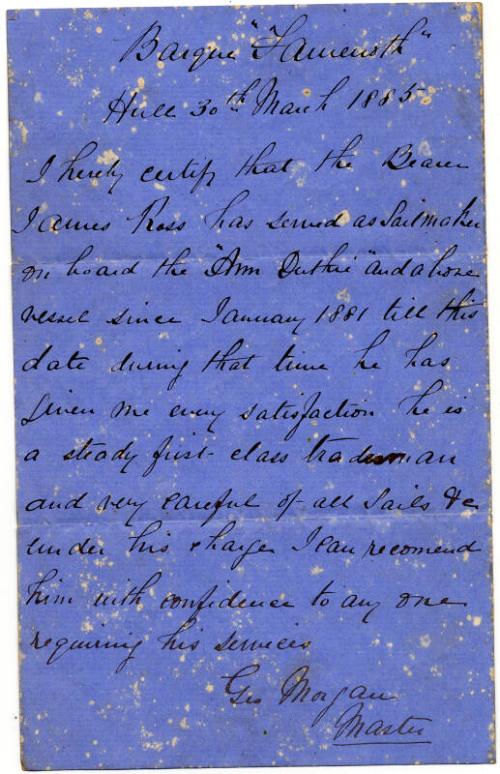 Barque "Tamworth"
Hull 30th March 1885
I hereby certify that the Bearer
James Ross has served as Sailmaker
on board the "Ann Duthie" and above
vessel since January 1881 till this
date during that time he has
given me every satisfaction he is
a steady first-class tradesman
and very careful of all Sails &c
under his charge I can recomend
him with confidence to any one
requiring his services
Geo Morgan
Master